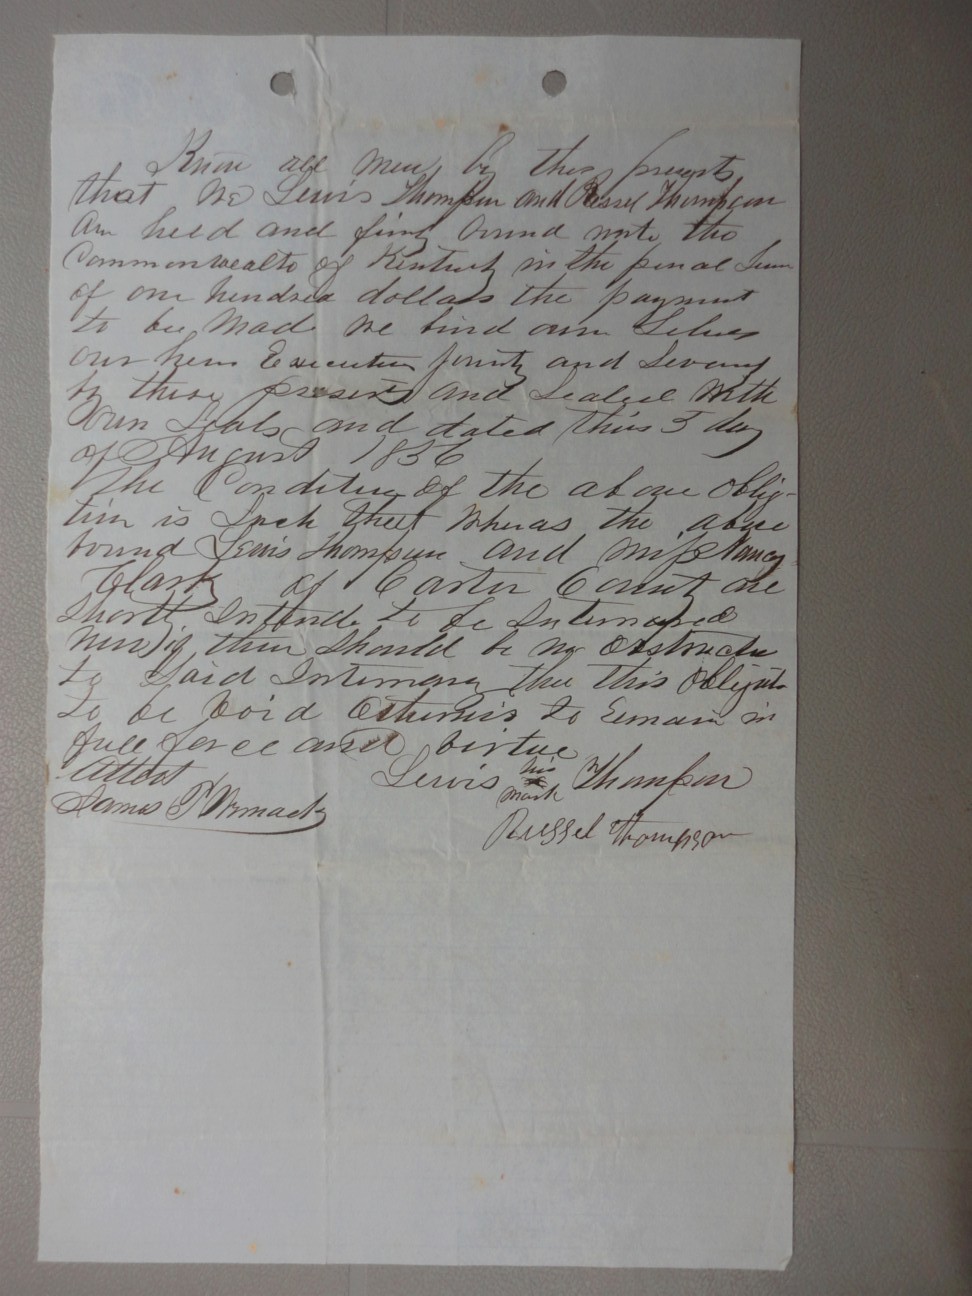 Know all men by these presents
that We Lewis Thompson and Russel Thompson
are held and firmly bound unto the
Commonwealth of Kentucky in the penal Sum
of one hundred dollars the payment
to be made we bind our Selves
our heirs Executors jointly and Severaly
by these presents and Sealed With
Our Seals and dated this 5 day
of August 1856
The Condition of the above oblig-
tion is Such that Wheras the above
bound Lewis Thompson and miss Nancy
Clark of Carter County are
Shortly Intends to be Intermared
Now if ther Should be no obstructn
to Said Intermarg then this Obligatn
to be Void Otherwis to Remain in
full force and virtue
Attest Lewis his Thompson
mark
James P Wmack
Russel Thompson